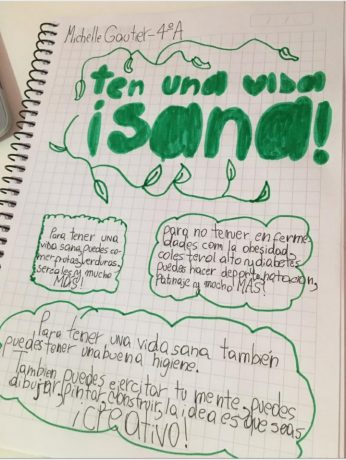 Michelle Gautier-4°A
ten una viba
¡sana!
Para tener una
viba sana, puedes co-
mer frutas, verduras,
sereales y mucho
MÁS!
para no tener enferme-
dades com la obesidad-
colesterol alto y diabetes
puedes hacer deporte, natacion,
Patinaje y mucho MÁS!
Para tener una vida sana tambien
puedes tener una buena higiene.
Tambien puedes ejercitar tu mente, puedes
dibujar, pintar, construir, la idea es que seas
¡creativo!